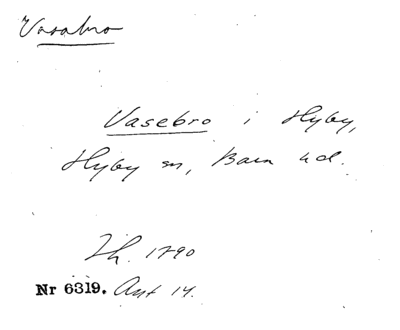 Vasabro
Vasebro i Hyby,
Hyby sn, Bara hd.
Th. 1790
Nr 6319. Ant 14.